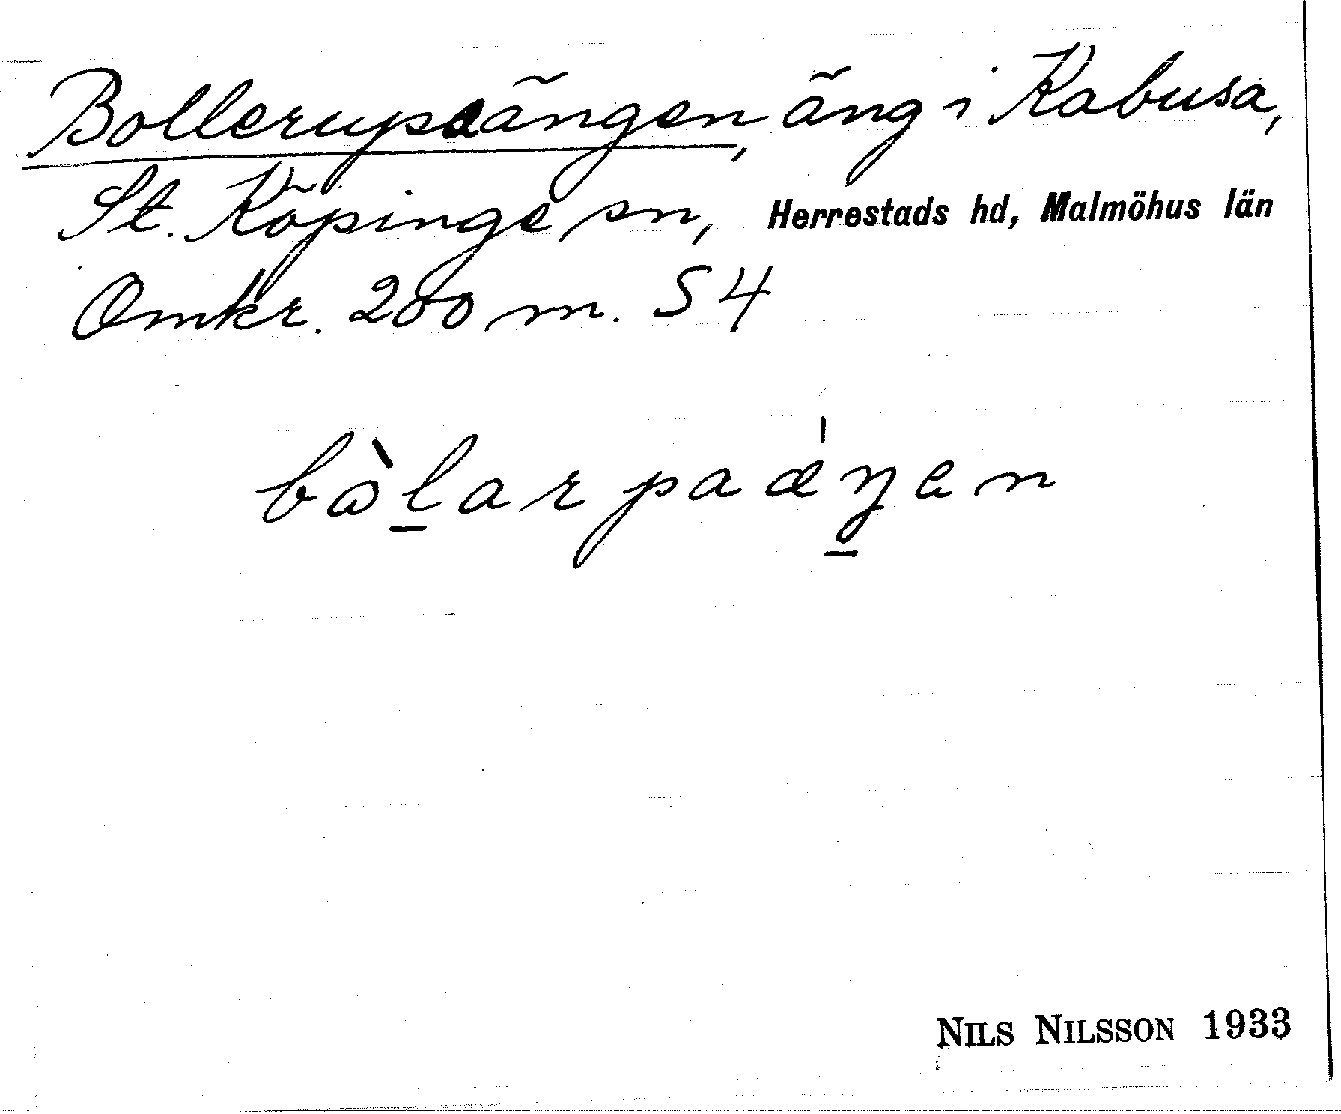 Bollerupaängen, äng i Kabusa,
St. Köpinge sn, Herrestads hd, Malmöhus län
Omkr. 200 m. S 4
bòlarpaǽŋen
NILS NILSSON 1933